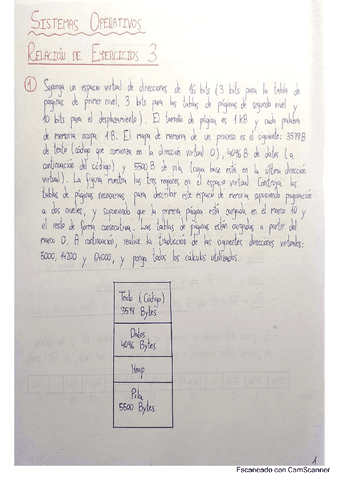 SISTEMAS OPERATIVOS
RELACIÓN DE EJERCICIOS 3
① Suponga un espacio virtual de direcciones de 16 bits (3 bits para la tabla de
páginas de primer nivel, 3 bits para las tablas de páginas de segundo nivel y
10 bits para el desplazamiento). El tamaño de página es 1 kB y cada palabra
de memoria ocupa 1 B. El mapa de memoria de un proceso es el siguiente: 3578 B
de texto (código que comienza en la dirección virtual 0), 4096 B de datos (a
continuación del código) y 5500 B de pila (cuya base está en la última dirección
virtual). La figura muestra las tres regiones en el espacio virtual. Construya las
tablas de páginas necesarias para describir este espacio de memoria suponiendo paginación
a dos niveles, y suponiendo que la primera página está cargada en el marco 10 y
el resto de forma consecutiva. Las tablas de páginas están cargadas a partir del
marco 0. A continuación, realice la traducción de las siguientes direcciones virtuales:
5000, 14200 y 64000, y ponga todos los cálculos utilizados.
Texto (Código)
3578 Bytes
Datos
4096 Bytes
Heap
Pila
5500 Bytes
1
Escaneado con CamScanner